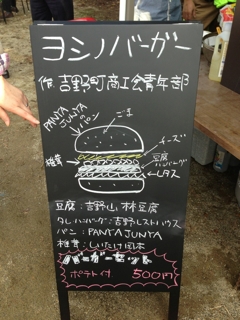 ヨシノバーガー
作 吉野町商工会青年部
PANYA
JUNYA
のパン
ごま
チーズ
豆腐
ハンバーグ
レタス
椎茸
豆腐：吉野山 林豆腐
タレ・ハンバーグ：吉野レストハウス
パン：PANYA JUNYA
椎茸：しいたけ岡本
バーガーセット
ポテト付 500円